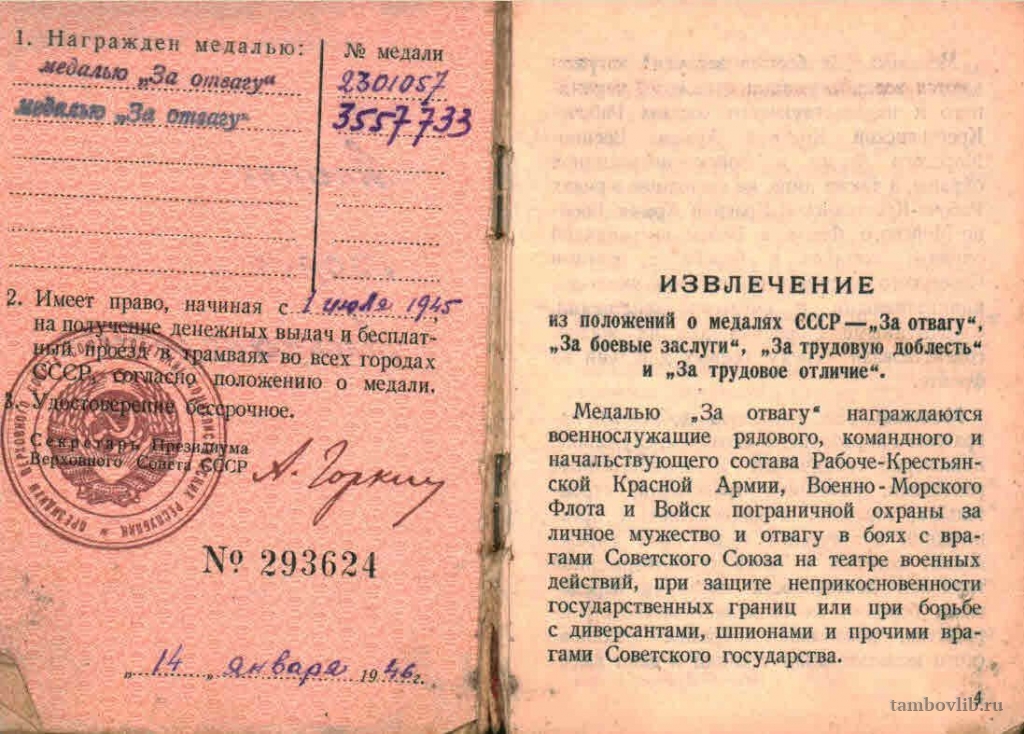 1. Награжден медалью:
№ медали
медалью „За отвагу“
2301057
медалью „За отвагу“
3557733
2. Имеет право, начиная с 1 июля 1945,
на получение денежных выдач и бесплат-
ный проезд в трамваях во всех городах
СССР, согласно положению о медали.
3. Удостоверение бессрочное.
Секретарь Президиума
Верховного Совета СССР
А. Горкин
№ 293624
„14„ января 1946г.
ИЗВЛЕЧЕНИЕ
из положений о медалях СССР—„За отвагу“,
„За боевые заслуги“, „За трудовую доблесть“
и „За трудовое отличие“.
Медалью „За отвагу“ награждаются
военнослужащие рядового, командного и
начальствующего состава Рабоче-Крестьян-
ской Красной Армии, Военно-Морского
Флота и Войск пограничной охраны за
личное мужество и отвагу в боях с вра-
гами Советского Союза на театре военных
действий, при защите неприкосновенности
государственных границ или при борьбе
с диверсантами, шпионами и прочими вра-
гами Советского государства.
4
tambovlib.ru